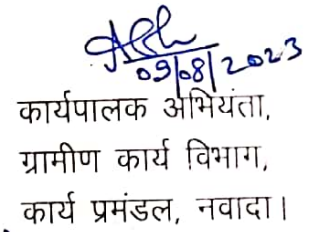 09/08/2023
कार्यपालक अभियंता,
ग्रामीण कार्य विभाग,
कार्य प्रमंडल, नवादा।